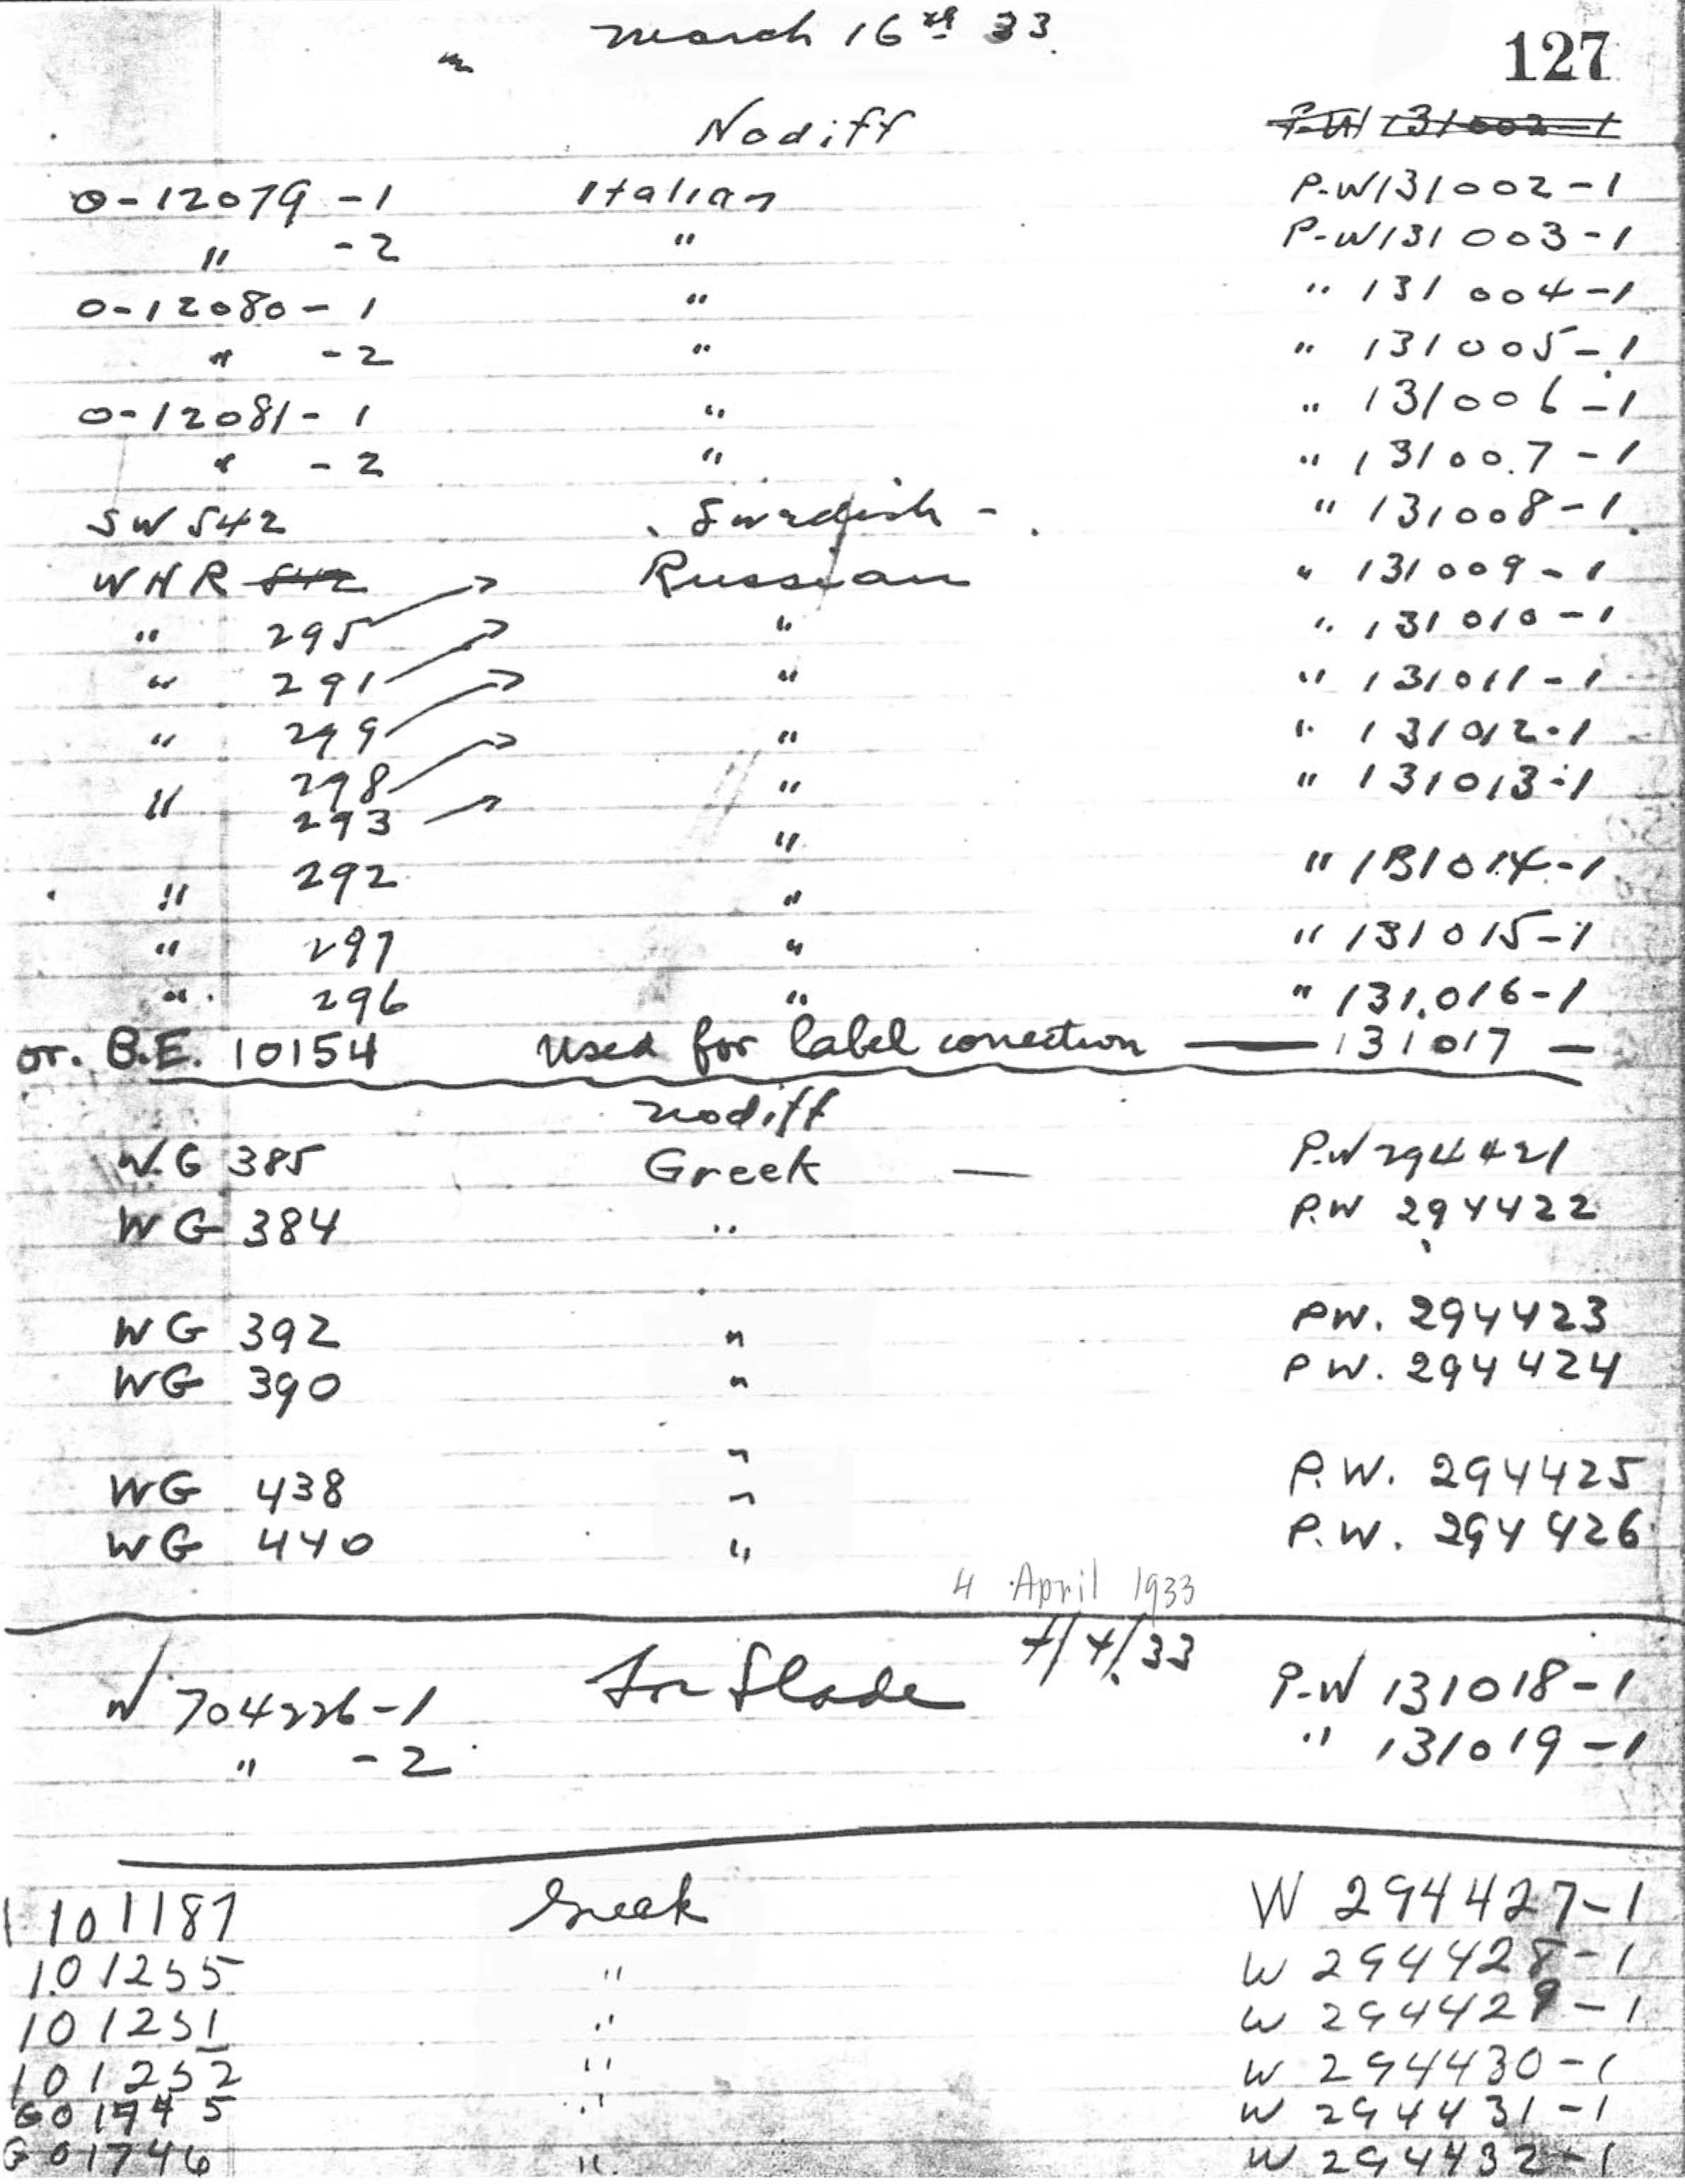 March 16th 33
127
Nodiff P-W 131002-1
0-12079 -1 Italian P-W131002-1
" -2 " P-W131003-1
0-12080-1 " " 131004-1
" -2 " " 131005-1
0-12081-1 " " 131006-1
" -2 " " 131007-1
SW 542 Swedish - " 131008-1
WNR 542 Russian " 131009-1
" 295 " " 131010-1
" 291 " " 131011-1
" 299 " " 131012-1
" 298 " " 131013-1
293 "
" 292 " " 131014-1
" 297 " " 131015-1
" 296 " " 131016-1
or. B.E. 10154 used for label correction — 131017 —
nodiff
W.G 385 Greek — P.W 294421
WG 384 " P.W 294422
WG 392 " PW. 294423
WG 390 " PW. 294424
"
WG 438 " P.W. 294425
WG 440 " P.W. 294426
4 April 1933
4/4/33
W 704226-1 for Slade P-W 131018-1
" -2 " 131019-1
101187 Greek W 294427-1
101255 " W 294428-1
101251 " W 294429-1
101252 " W 294430-1
G01745 " W 294431-1
G01746 " W 294432-1